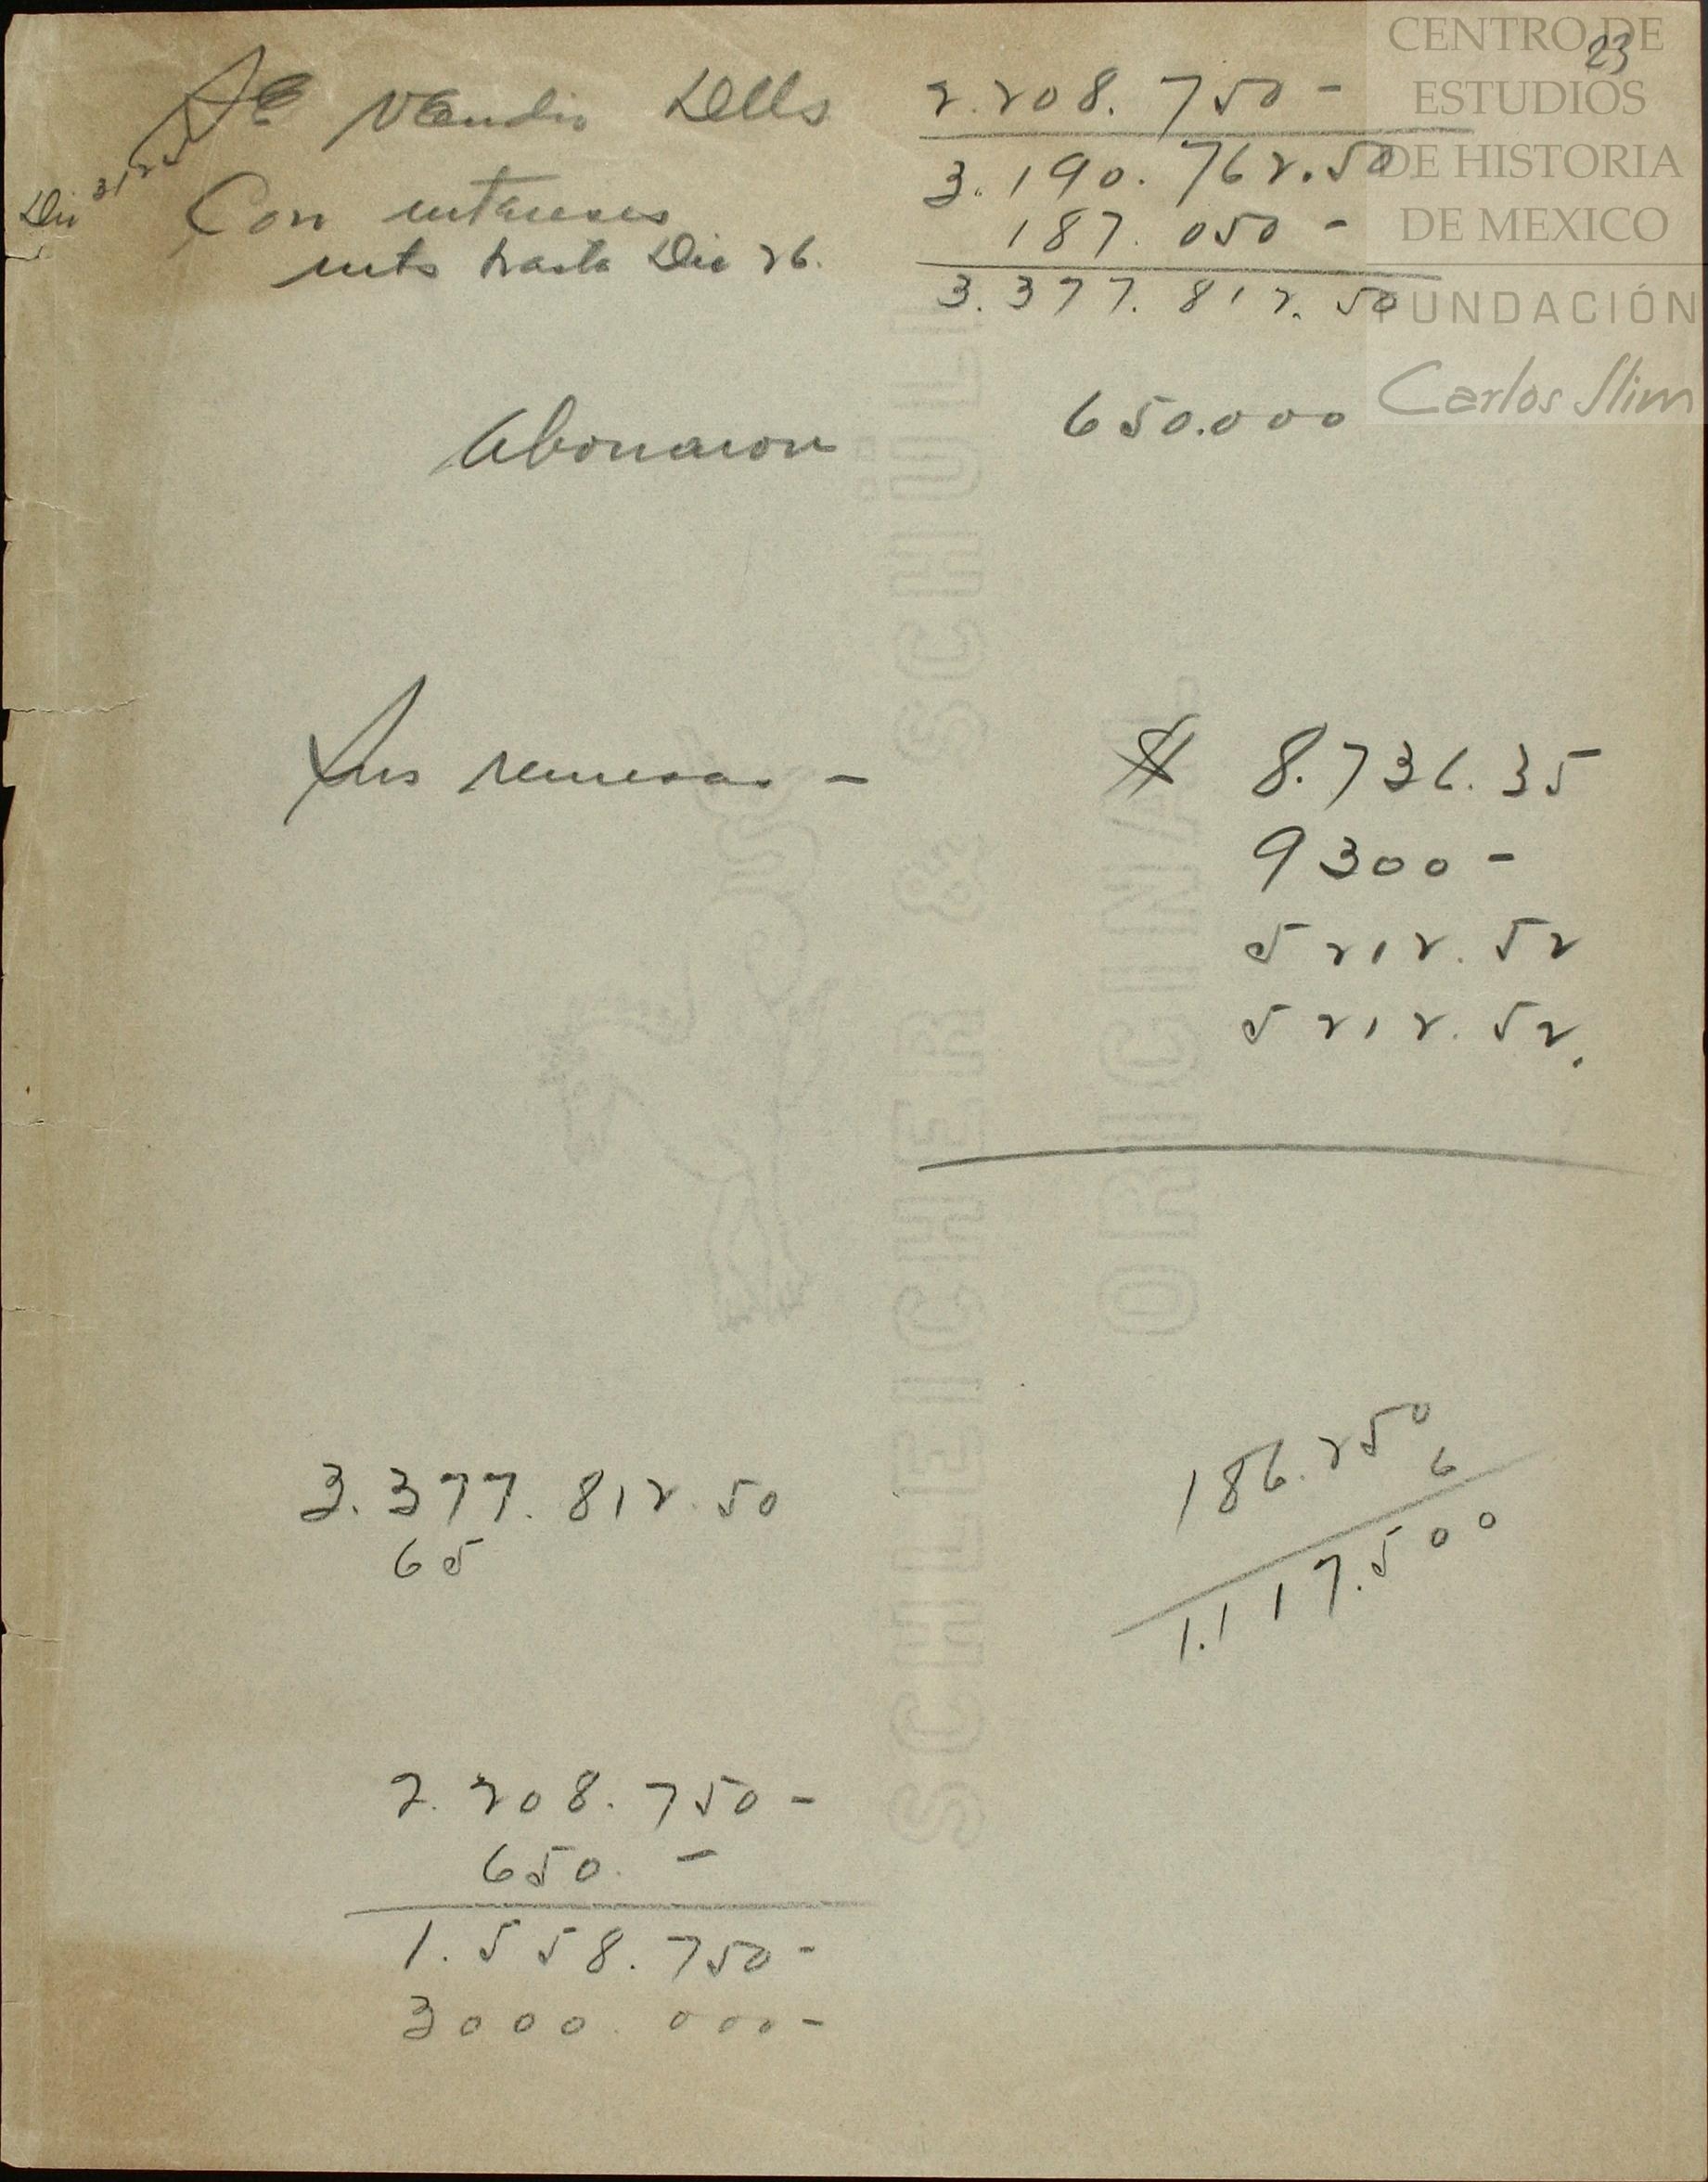 23
Se vendio Dlls 2.208.750-
Dic 31 25
3.190.762.50
Con intereses
187.050-
ints hasta Dic 26.
3.377.812.50
Abonaron 650.000
Sus remesas - $ 8.736.35
9300-
5212.52
5212.52.
3.377.812.50
65
186.250
6
1.117.500
2.208.750-
650.-
1.558.750-
3000.000-
SCHLEICHER & SCHÜLL
ORIGINAL
CENTRO DE
ESTUDIOS
DE HISTORIA
DE MEXICO
FUNDACIÓN
Carlos Slim